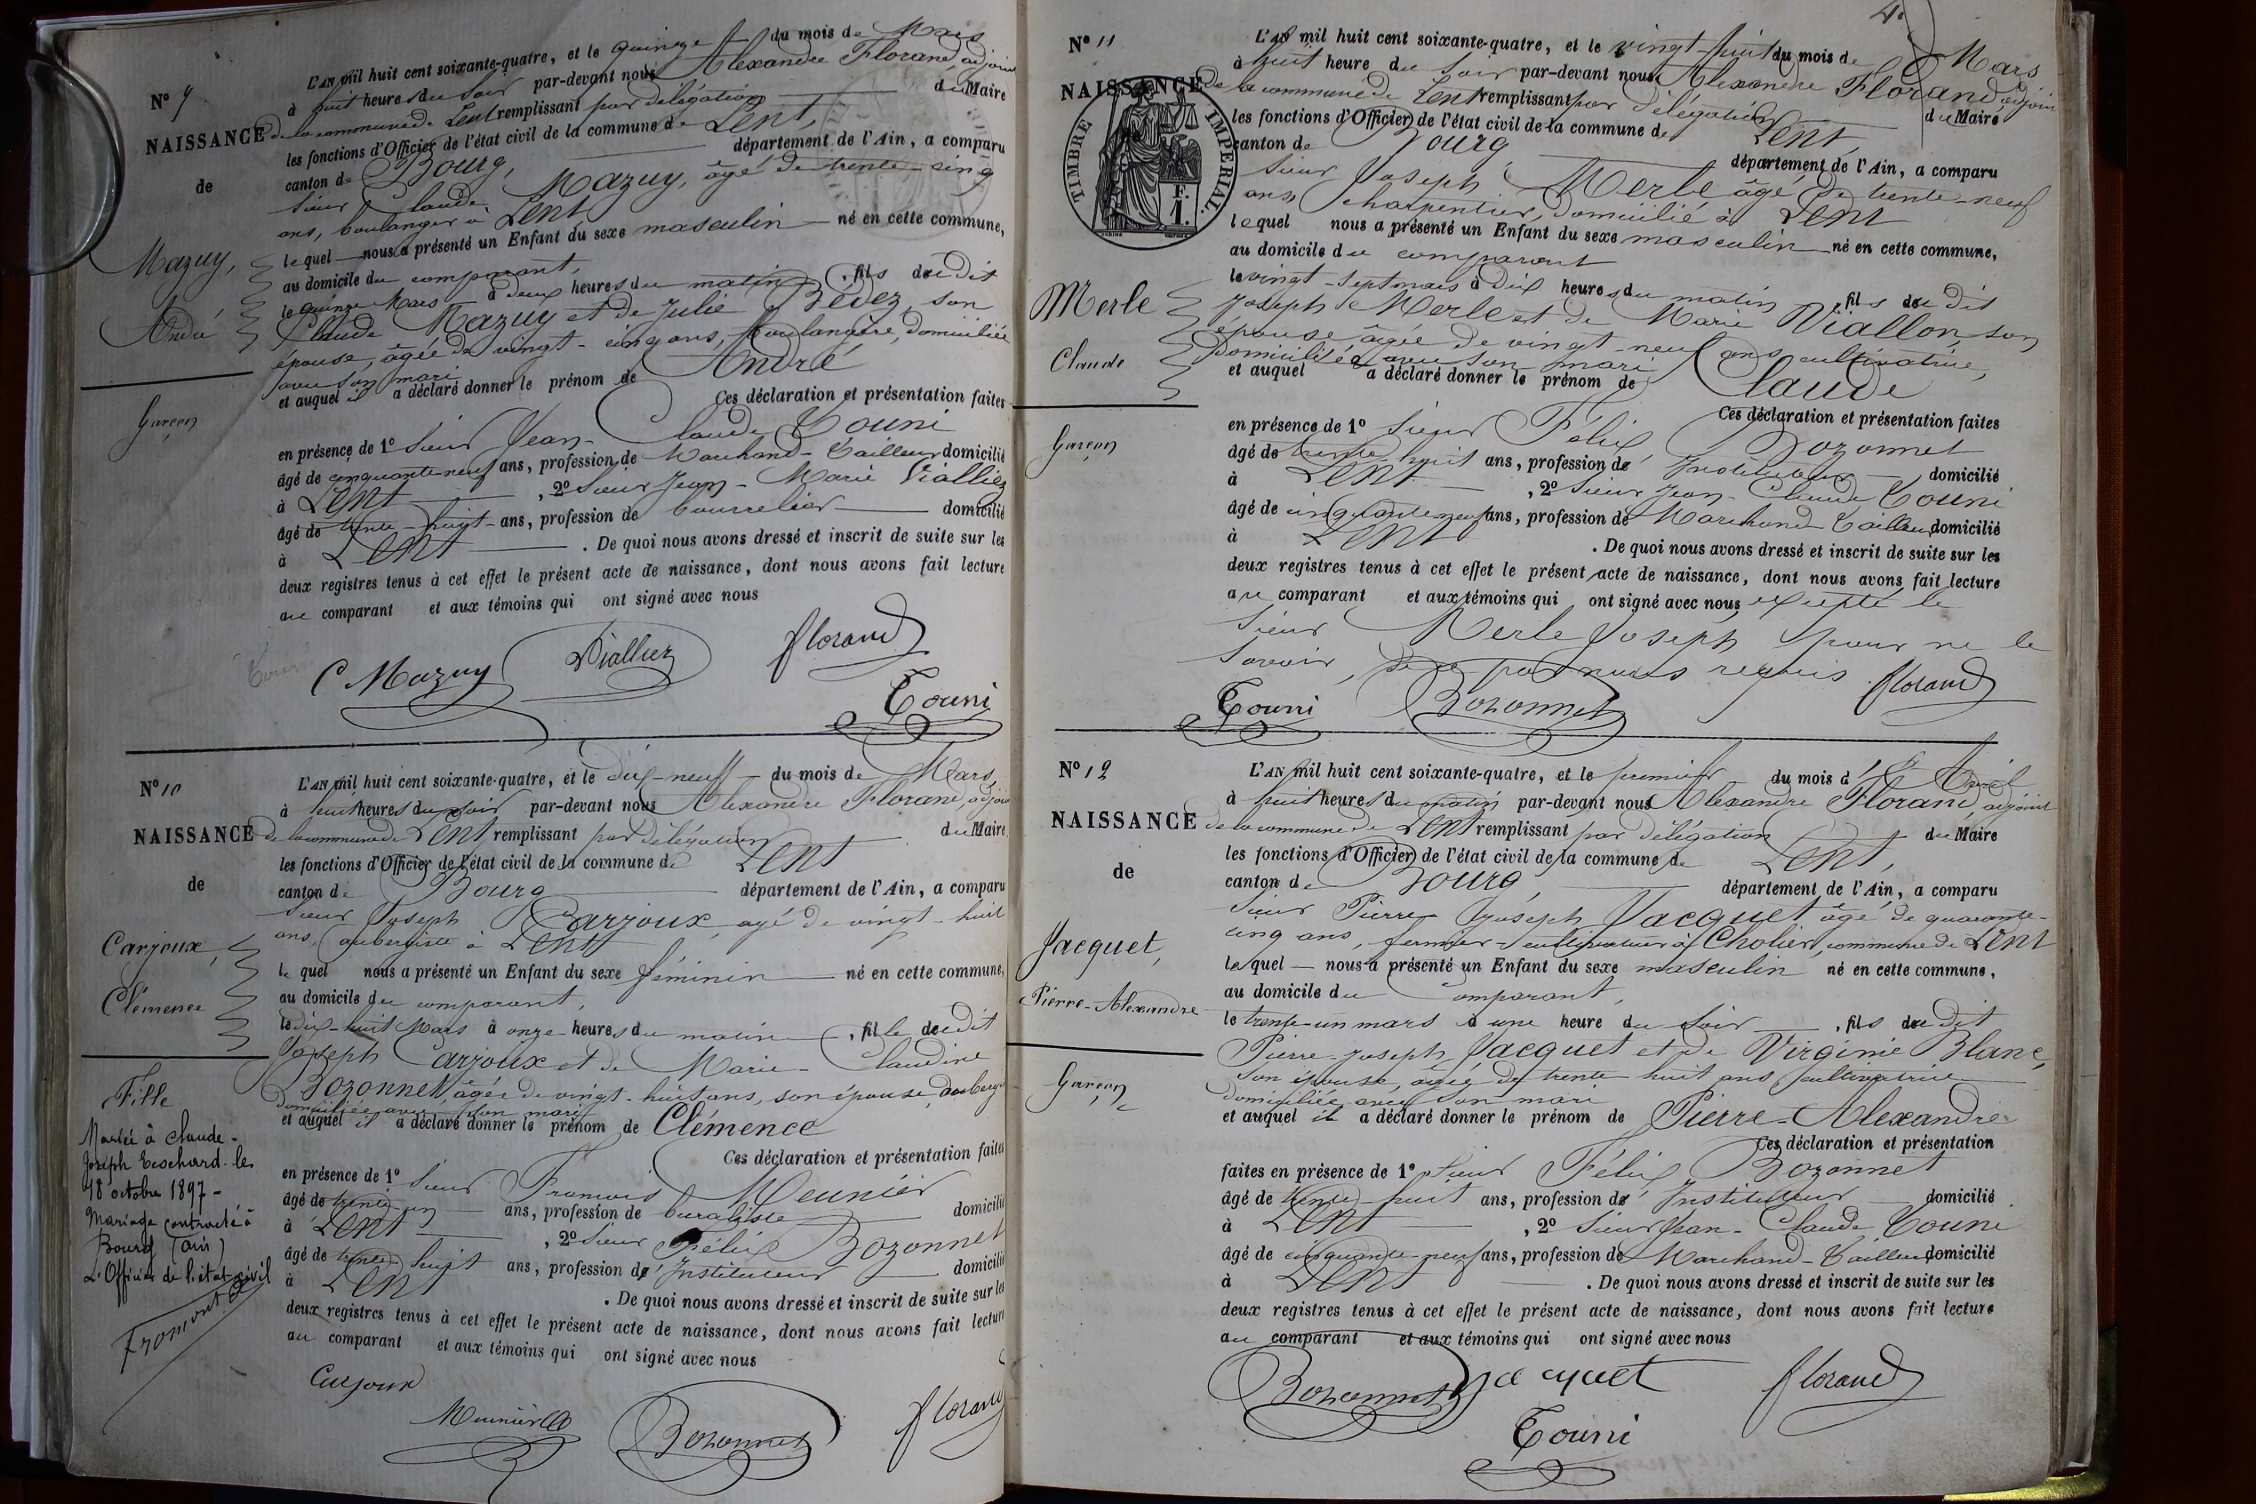 N° 9
NAISSANCE
de
Mazuy,
André
Garçon
L'AN mil huit cent soixante-quatre, et le quinze du mois de Mars
à huit heures du soir par-devant nous Alexandre Florand, adjoint
de la commune de Lent remplissant par délégation du Maire
les fonctions d'Officier de l'état civil de la commune de Lent,
canton de Bourg, département de l'Ain, a comparu
sieur Claude Mazuy, âgé de trente-cinq
ans, boulanger à Lent
lequel nous a présenté un Enfant du sexe masculin né en cette commune,
au domicile du comparant,
le quinze Mars à deux heures du matin, fils dudit
Claude Mazuy et de Julie Bévez, son
épouse, âgée de vingt-cinq ans, boulangère, domiciliée
avec son mari
et auquel il a déclaré donner le prénom de André
Ces déclaration et présentation faites
en présence de 1° sieur Jean-Claude Touni
âgé de cinquante-neuf ans, profession de Marchand-Tailleur domicilié
à Lent, 2° sieur Jean-Marie Viallier
âgé de trente-huit ans, profession de bourrelier domicilié
à Lent. De quoi nous avons dressé et inscrit de suite sur les
deux registres tenus à cet effet le présent acte de naissance, dont nous avons fait lecture
au comparant et aux témoins qui ont signé avec nous
C Mazuy Viallier florand
Touni
N° 10
NAISSANCE
de
Carjoux,
Clémence
Fille
Mariée à Claude-
Joseph Teschard le
18 octobre 1897-
Mariage contracté à
Bourg (Ain)
L'Officier de l'état civil
Fromont
L'AN mil huit cent soixante-quatre, et le dix-neuf du mois de Mars,
à huit heures du soir par-devant nous Alexandre Florand, adjoint
de la commune de Lent remplissant par délégation du Maire
les fonctions d'Officier de l'état civil de la commune de Lent
canton de Bourg département de l'Ain, a comparu
sieur Joseph Carjoux, âgé de vingt-huit
ans, aubergiste à Lent
lequel nous a présenté un Enfant du sexe féminin né en cette commune,
au domicile du comparant,
le dix-huit Mars à onze heures du matin, fille dudit
Joseph Carjoux et de Marie-Claudine
Bozonnet, âgée de vingt-huit ans, son épouse, auberg
domiciliée avec son mari
et auquel il a déclaré donner le prénom de Clémence
Ces déclaration et présentation faites
en présence de 1° sieur François Meunier
âgé de trente-un ans, profession de buraliste domicilié
à Lent, 2° sieur Félix Bozonnet
âgé de trente huit ans, profession d'Instituteur domicilié
à Lent. De quoi nous avons dressé et inscrit de suite sur les
deux registres tenus à cet effet le présent acte de naissance, dont nous avons fait lecture
au comparant et aux témoins qui ont signé avec nous
Carjoux
Meunier Bozonnet florand
4.
N° 11
NAISSANCE
TIMBRE IMPERIAL
F.
1.
Merle
Claude
Garçon
L'AN mil huit cent soixante-quatre, et le vingt-huit du mois de Mars
à huit heure du soir par-devant nous Alexandre Florand, adjoint
de la commune de Lent remplissant par délégation du Maire
les fonctions d'Officier de l'état civil de la commune de Lent,
canton de Bourg département de l'Ain, a comparu
sieur Joseph Merle âgé de trente-neuf
ans, charpentier, domicilié à Lent
lequel nous a présenté un Enfant du sexe masculin né en cette commune,
au domicile du comparant
le vingt-sept mars à dix heures du matin, fils dudit
Joseph Merle et de Marie Viallon, son
épouse âgée de vingt-neuf ans, cultivatrice,
domiciliée avec son mari
et auquel a déclaré donner le prénom de Claude
Ces déclaration et présentation faites
en présence de 1° sieur Félix Bozonnet
âgé de trente-huit ans, profession d'Instituteur domicilié
à Lent, 2° sieur Jean-Claude Touni
âgé de cinquante-neuf ans, profession de Marchand-Tailleur domicilié
à Lent. De quoi nous avons dressé et inscrit de suite sur les
deux registres tenus à cet effet le présent acte de naissance, dont nous avons fait lecture
au comparant et aux témoins qui ont signé avec nous, excepté le
sieur Merle Joseph pour ne le
savoir, de ce par nous requis. florand
Touni Bozonnet
N° 12
NAISSANCE
de
Jacquet,
Pierre-Alexandre
Garçon
L'AN mil huit cent soixante-quatre, et le premier du mois d'Avril
à huit heures du matin par-devant nous Alexandre Florand, adjoint
de la commune de Lent remplissant par délégation du Maire
les fonctions d'Officier de l'état civil de la commune de Lent,
canton de Bourg, département de l'Ain, a comparu
sieur Pierre Joseph Jacquet âgé de quarante-
cinq ans, fermier-cultivateur à Cholier, commune de Lent
lequel nous a présenté un Enfant du sexe masculin né en cette commune,
au domicile du comparant,
le trente-un mars à une heure du soir, fils dudit
Pierre-Joseph Jacquet et de Virginie Blanc,
son épouse, âgée de trente huit ans cultivatrice
domiciliée avec son mari
et auquel il a déclaré donner le prénom de Pierre-Alexandre
Ces déclaration et présentation
faites en présence de 1° sieur Félix Bozonnet
âgé de trente-huit ans, profession d'Instituteur domicilié
à Lent, 2° sieur Jean-Claude Touni
âgé de cinquante-neuf ans, profession de Marchand-Tailleur domicilié
à Lent. De quoi nous avons dressé et inscrit de suite sur les
deux registres tenus à cet effet le présent acte de naissance, dont nous avons fait lecture
au comparant et aux témoins qui ont signé avec nous
Bozonnet Jacquet florand
Touni